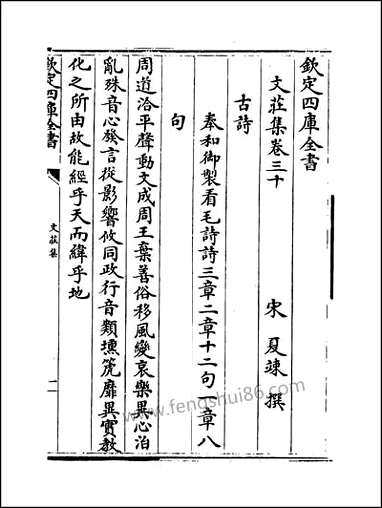 欽定四庫全書
文莊集卷三十
宋 夏竦 撰
古詩
奉和御製看毛詩詩三章二章十二句一章八
句
周道洽平聲動文成周王葉善俗移風變哀樂異心治
亂殊音心發言從影響攸同政行音類壎箎靡異實教
化之所由故能經乎天而緯乎地
欽定四庫全書
文莊集
一
www.fengshui86.com